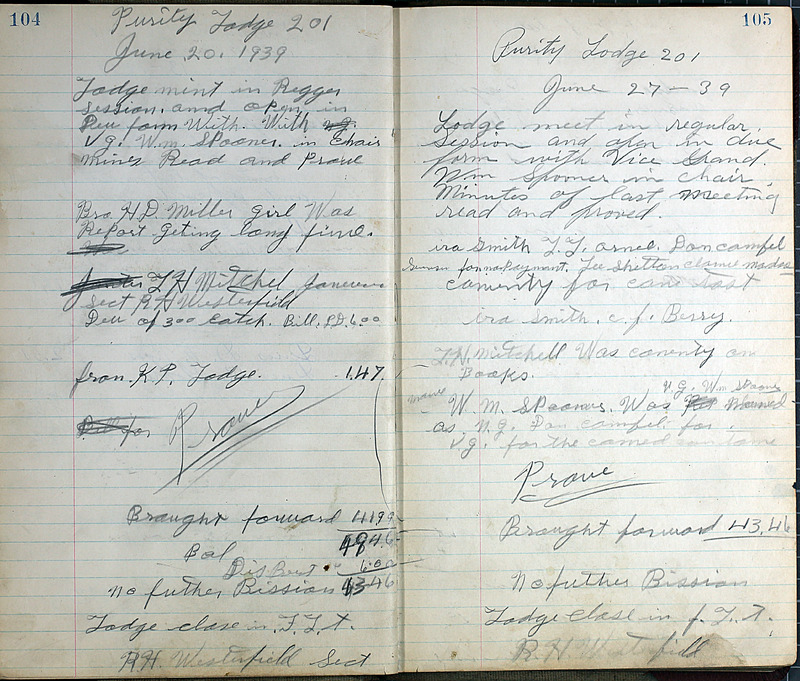 104
Purity Lodge 201
June 20. 1939
Lodge mint in Regger
Session. and open, in
Deu form With. With
V.g. W.m. Spooner. in Chair
mines Read and Prove
Bro. H.D. Miller girl Was
Report geting long fine.
T H Mitchel
Sect R H Westerfield
Deu of 3.00 Catch. Bill. P.D. 6.00
from. K.P. Lodge. 1.47
for
Prove
Braught forward 4199
Bal
DisBent 6.00
no futher Bission 43 46
Lodge close in. F.L.t.
R.H. Westerfield Sect
105
Purity Lodge 201
June 27 - 39
Lodge meet in regular,
Session and open in due
form with Vice Grand.
Wm Spooner in chair,
Minutes of last meeting
read and proved.
ira Smith Dan campel
Lee Shelton
ira Smith. c. f. Berry.
T.H. Mitchell Was on
Books.
n.g. Wm Spooner
W. M. Spooner. Was
as n.g. Dan campel. for
V.g. for the
Prove
Braught forward 43.46
No futher Bission
Lodge close in f. L. t.
R. H Westerfield